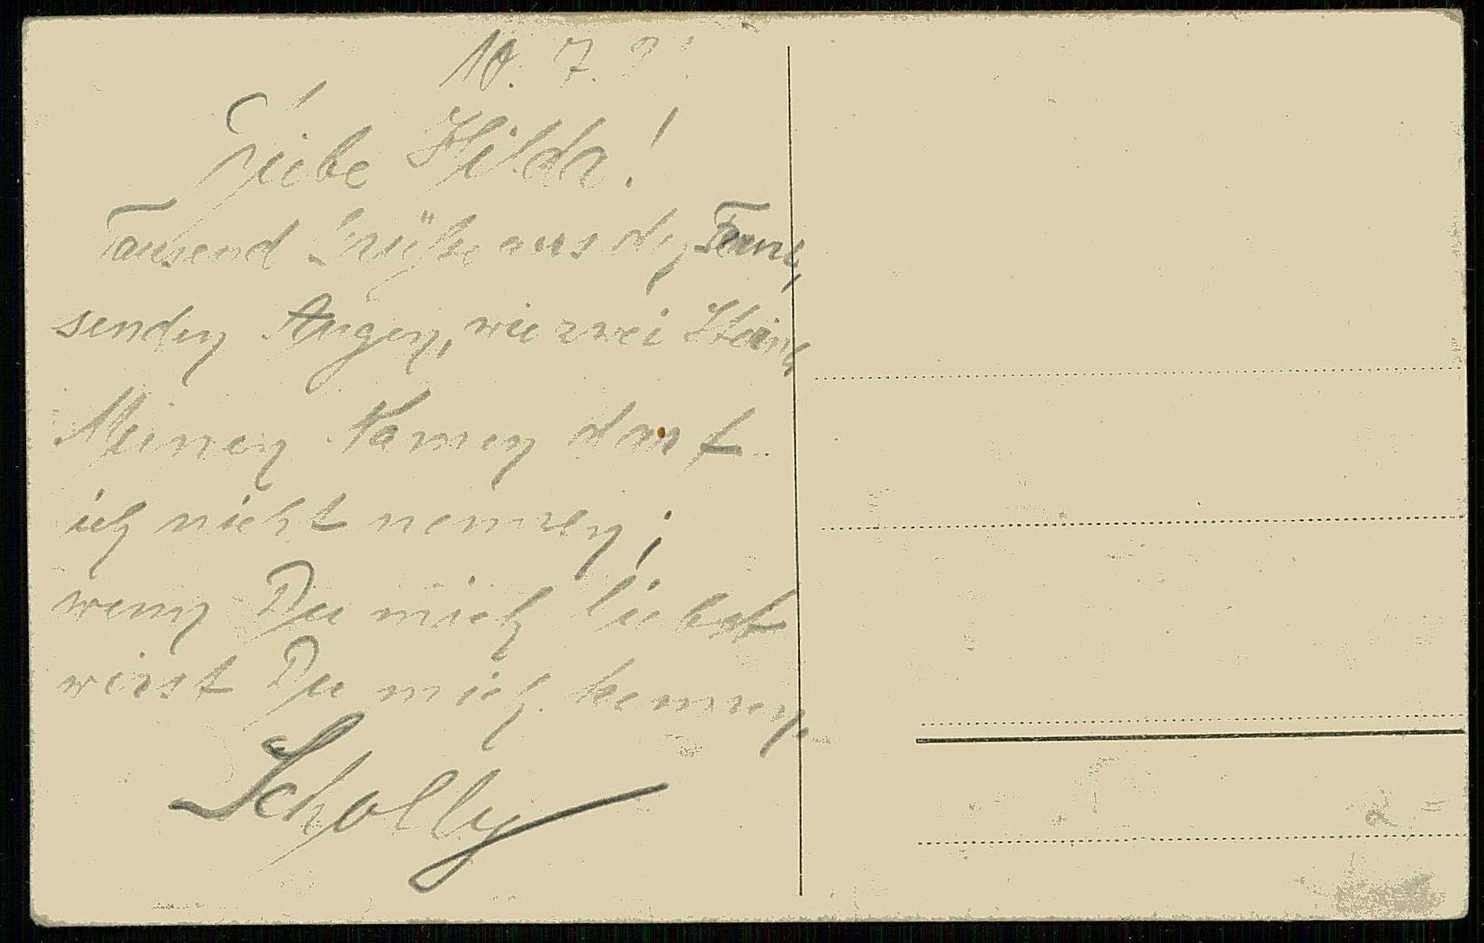 10. 7.
Liebe Hilda!
Tausend Grüße aus der Ferne,
senden Augen, wie zwei Sterne
Meinen Namen darf
ich nicht nennen;
wenn Du mich liebst
wirst Du mich kennen.
Scholly
2 =